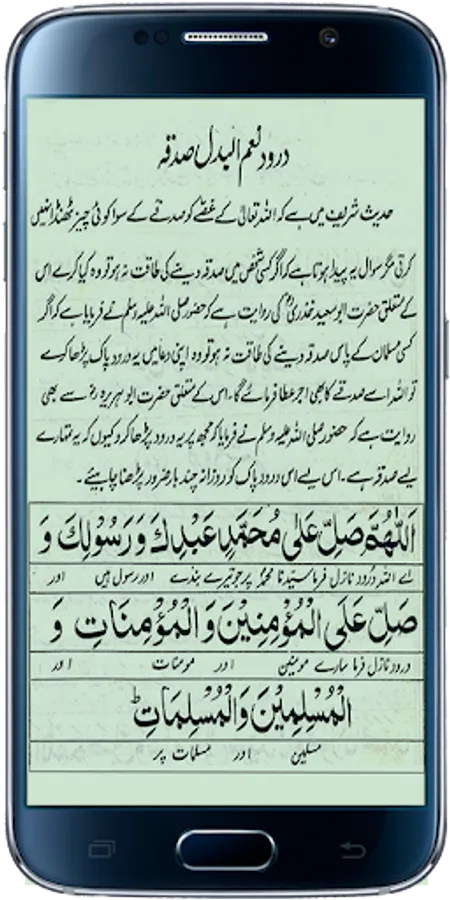 درود نعم البدل صدقہ
حدیث شریف میں ہے کہ اللہ تعالیٰ کے غصے کو صدقے کے سوا کوئی چیز ٹھنڈا نہیں
کرتی مگر سوال یہ پیدا ہوتا ہے کہ اگر کسی شخص میں صدقہ دینے کی طاقت نہ ہو تو وہ کیا کرے اس
کے متعلق حضرت ابو سعید خدری کی روایت ہے کہ حضور صلی اللہ علیہ وسلم نے فرمایا ہے کہ اگر
کسی مسلمان کے پاس صدقہ دینے کی طاقت نہ ہو تو وہ اپنی دعا میں یہ درود پاک پڑھا کرے
تو اللہ اسے صدقے کا بھی اجر عطا فرمائے گا۔ اس کے متعلق حضرت ابو ہریرہ رضہ سے بھی
روایت ہے کہ حضور صلی اللہ علیہ وسلم نے فرمایا کہ مجھ پر یہ درود پڑھا کرو کیوں کہ یہ تمہارے
لیے صدقہ ہے۔ اس لیے اس درود پاک کو روزانہ چند بار ضرور پڑھنا چاہیئے۔
اَللّٰهُمَّ صَلِّ عَلٰى مُحَمَّدٍ عَبْدِكَ وَ رَسُوْلِكَ وَ
اے اللہ درود نازل فرما سیدنا محمدؐ پر جو تیرے بندے اور رسول ہیں اور
صَلِّ عَلَى الْمُؤْمِنِيْنَ وَ الْمُؤْمِنَاتِ وَ
درود نازل فرما سارے مومنین اور مومنات اور
الْمُسْلِمِيْنَ وَالْمُسْلِمَاتِ ط
مسلمین اور مسلمات پر